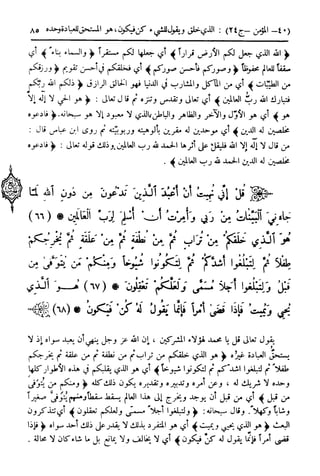 (٤٠ - المؤمن - ج٢٤) : الذي خلق ويقول للشيء كن فيكون، هو المستحق للعبادة وحده ٨٥
﴿ الله الذي جعل لكم الأرض قراراً ﴾ أي جعلها لكم مستقراً ﴿ والسماء بناء ﴾ أي
سقفاً للعالم محفوظاً ﴿ وصوركم فأحسن صوركم ﴾ أي فخلقكم في أحسن تقويم ﴿ ورزقكم
من الطيبات ﴾ أي من المآكل والمشارب في الدنيا فهو الخالق الرازق ﴿ ذلكم الله ربكم
فتبارك الله رب العالمين ﴾ أي تعالى وتقدس وتنزه ثم قال تعالى : ﴿ هو الحي لا إله إلا
هو ﴾ أي هو الأول والآخر والظاهر والباطن الذي لا معبود إلا هو سبحانه. ﴿ فادعوه
مخلصين له الدين ﴾ أي موحدين له مقرين بألوهيته وربوبيته ثم روى ابن عباس قال :
من قال لا إله إلا الله فليقل على أثرها الحمد لله رب العالمين وذلك قوله تعالى : ﴿ فادعوه
مخلصين له الدين الحمد لله رب العالمين ﴾ .
قُلْ إِنِّي نُهِيتُ أَنْ أَعْبُدَ الَّذِينَ تَدْعُونَ مِن دُونِ اللَّهِ لَمَّا
جَاءَنِيَ الْبَيِّنَاتُ مِن رَّبِّي وَأُمِرْتُ أَنْ أُسْلِمَ لِرَبِّ الْعَالَمِينَ * (٦٦)
هُوَ الَّذِي خَلَقَكُم مِّن تُرَابٍ ثُمَّ مِن نُّطْفَةٍ ثُمَّ مِنْ عَلَقَةٍ ثُمَّ يُخْرِجُكُمْ
طِفْلاً ثُمَّ لِتَبْلُغُوا أَشُدَّكُمْ ثُمَّ لِتَكُونُوا شُيُوخاً وَمِنكُم مَّن يُتَوَفَّى مِن
قَبْلُ وَلِتَبْلُغُوا أَجَلاً مُّسَمًّى وَلَعَلَّكُمْ تَعْقِلُونَ * (٦٧) هُوَ الَّذِي
يُحْيِي وَيُمِيتُ فَإِذَا قَضَى أَمْراً فَإِنَّمَا يَقُولُ لَهُ كُن فَيَكُونُ * (٦٨)
يقول تعالى قل يا محمد لهؤلاء المشركين ، إن الله عز وجل ينهى أن يعبد سواه إذ لا
يستحق العبادة غيره ﴿ هو الذي خلقكم من تراب ثم من نطفة ثم من علقة ثم يخرجكم
طفلاً ثم لتبلغوا أشدكم ثم لتكونوا شيوخاً ﴾ أي هو الذي يقلبكم في هذه الأطوار كلها
وحده لا شريك له ، وعن أمره وتدبيره وتقديره يكون ذلك كله ﴿ ومنكم من يُتوفى
من قبل ﴾ أي من قبل أن يوجد ويخرج إلى هذا العالم بسقط ومنهم يُتوفى صغيراً
وشاباً وكهلاً. وقال سبحانه : ﴿ ولتبلغوا أجلاً مسمى ولعلكم تعقلون ﴾ أي تتذكرون
البعث ﴿ هو الذي يحيي ويميت ﴾ أي هو المتفرد بذلك لا يقدر على ذلك أحد سواه ﴿ فإذا
قضى أمراً فإنما يقول له كن فيكون ﴾ أي لا يخالف ولا يمانع بل ما شاء كان لا محالة .